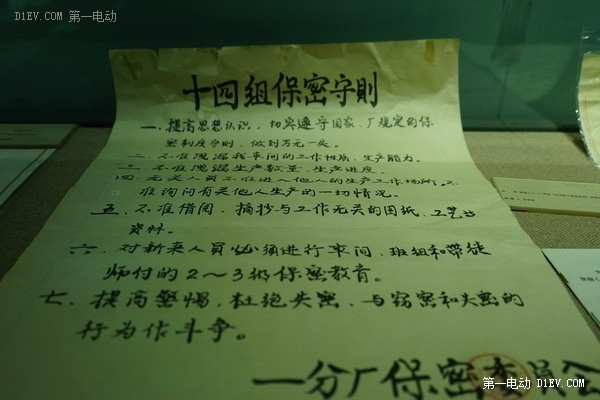 D1EV.COM 第一电动
十四组保密守则
一、提高思想认识，切实遵守国家、厂规定的保
密制度守则，做到万无一失。
二、不准泄漏我车间的工作性质、生产能力。
三、不准泄漏生产数量、生产进度。
四、无关人员不准进入他人的生产工作场所，不
准询问有关他人生产的一切情况。
五、不准借阅、摘抄与工作无关的图纸、工艺
资料。
六、对新来人员必须进行车间、班组和带徒
师付的2～3级保密教育。
七、提高警惕、杜绝失密、与窃密和失密的
行为作斗争。
一分厂保密委员会
第一电动 D1EV.COM